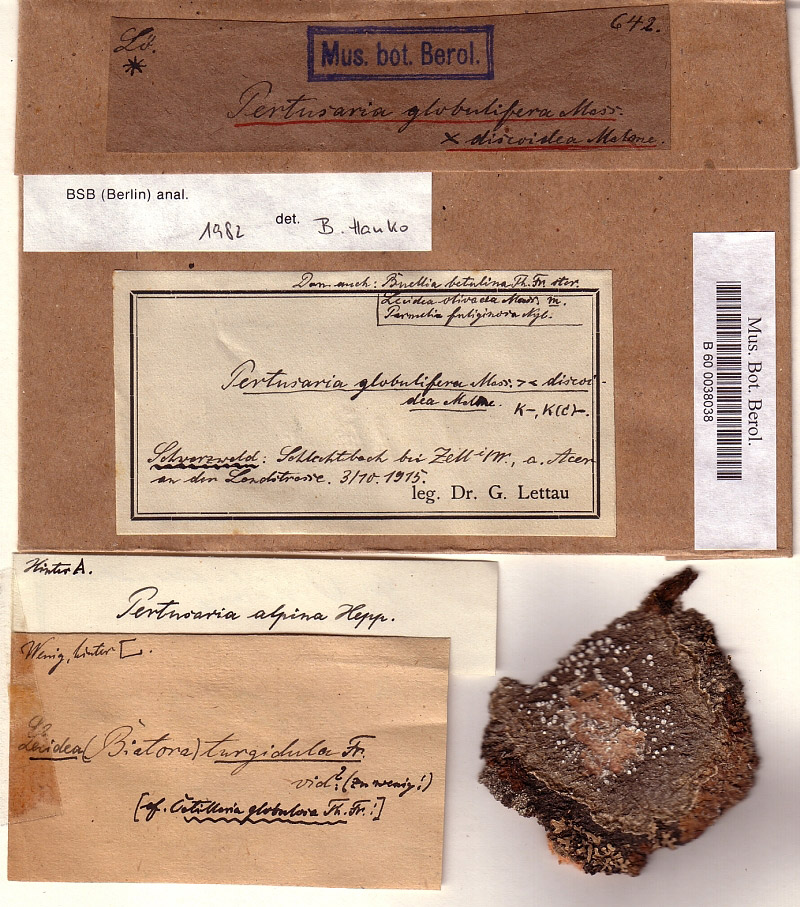 Lö. 642.
*
Mus. bot. Berol.
Pertusaria globulifera Mass.
× discoidea Malme.
BSB (Berlin) anal.
1982 det. B. Hanko
Mus. Bot. Berol.
B 60 0038038
Dan. auch: Buellia betulina Th. Fr. ster.
Lecidea olivacea Mass. m.
Parmelia fuliginosa Nyl.
Pertusaria globulifera Mass. >< discoi-
dea Malme. K-, K(C)-.
Schwarzwald: Schlechtbach bei Zell i/W., a. Acer
an der Landstrasse. 3/10. 1915.
leg. Dr. G. Lettau
Hinter A.
Pertusaria alpina Hepp.
Wenig, hinter [.
Lecidea (Biatora) turgidula Fr.
vid.? (zu wenig!)
[cf. Catillaria globulosa Th. Fr.!]